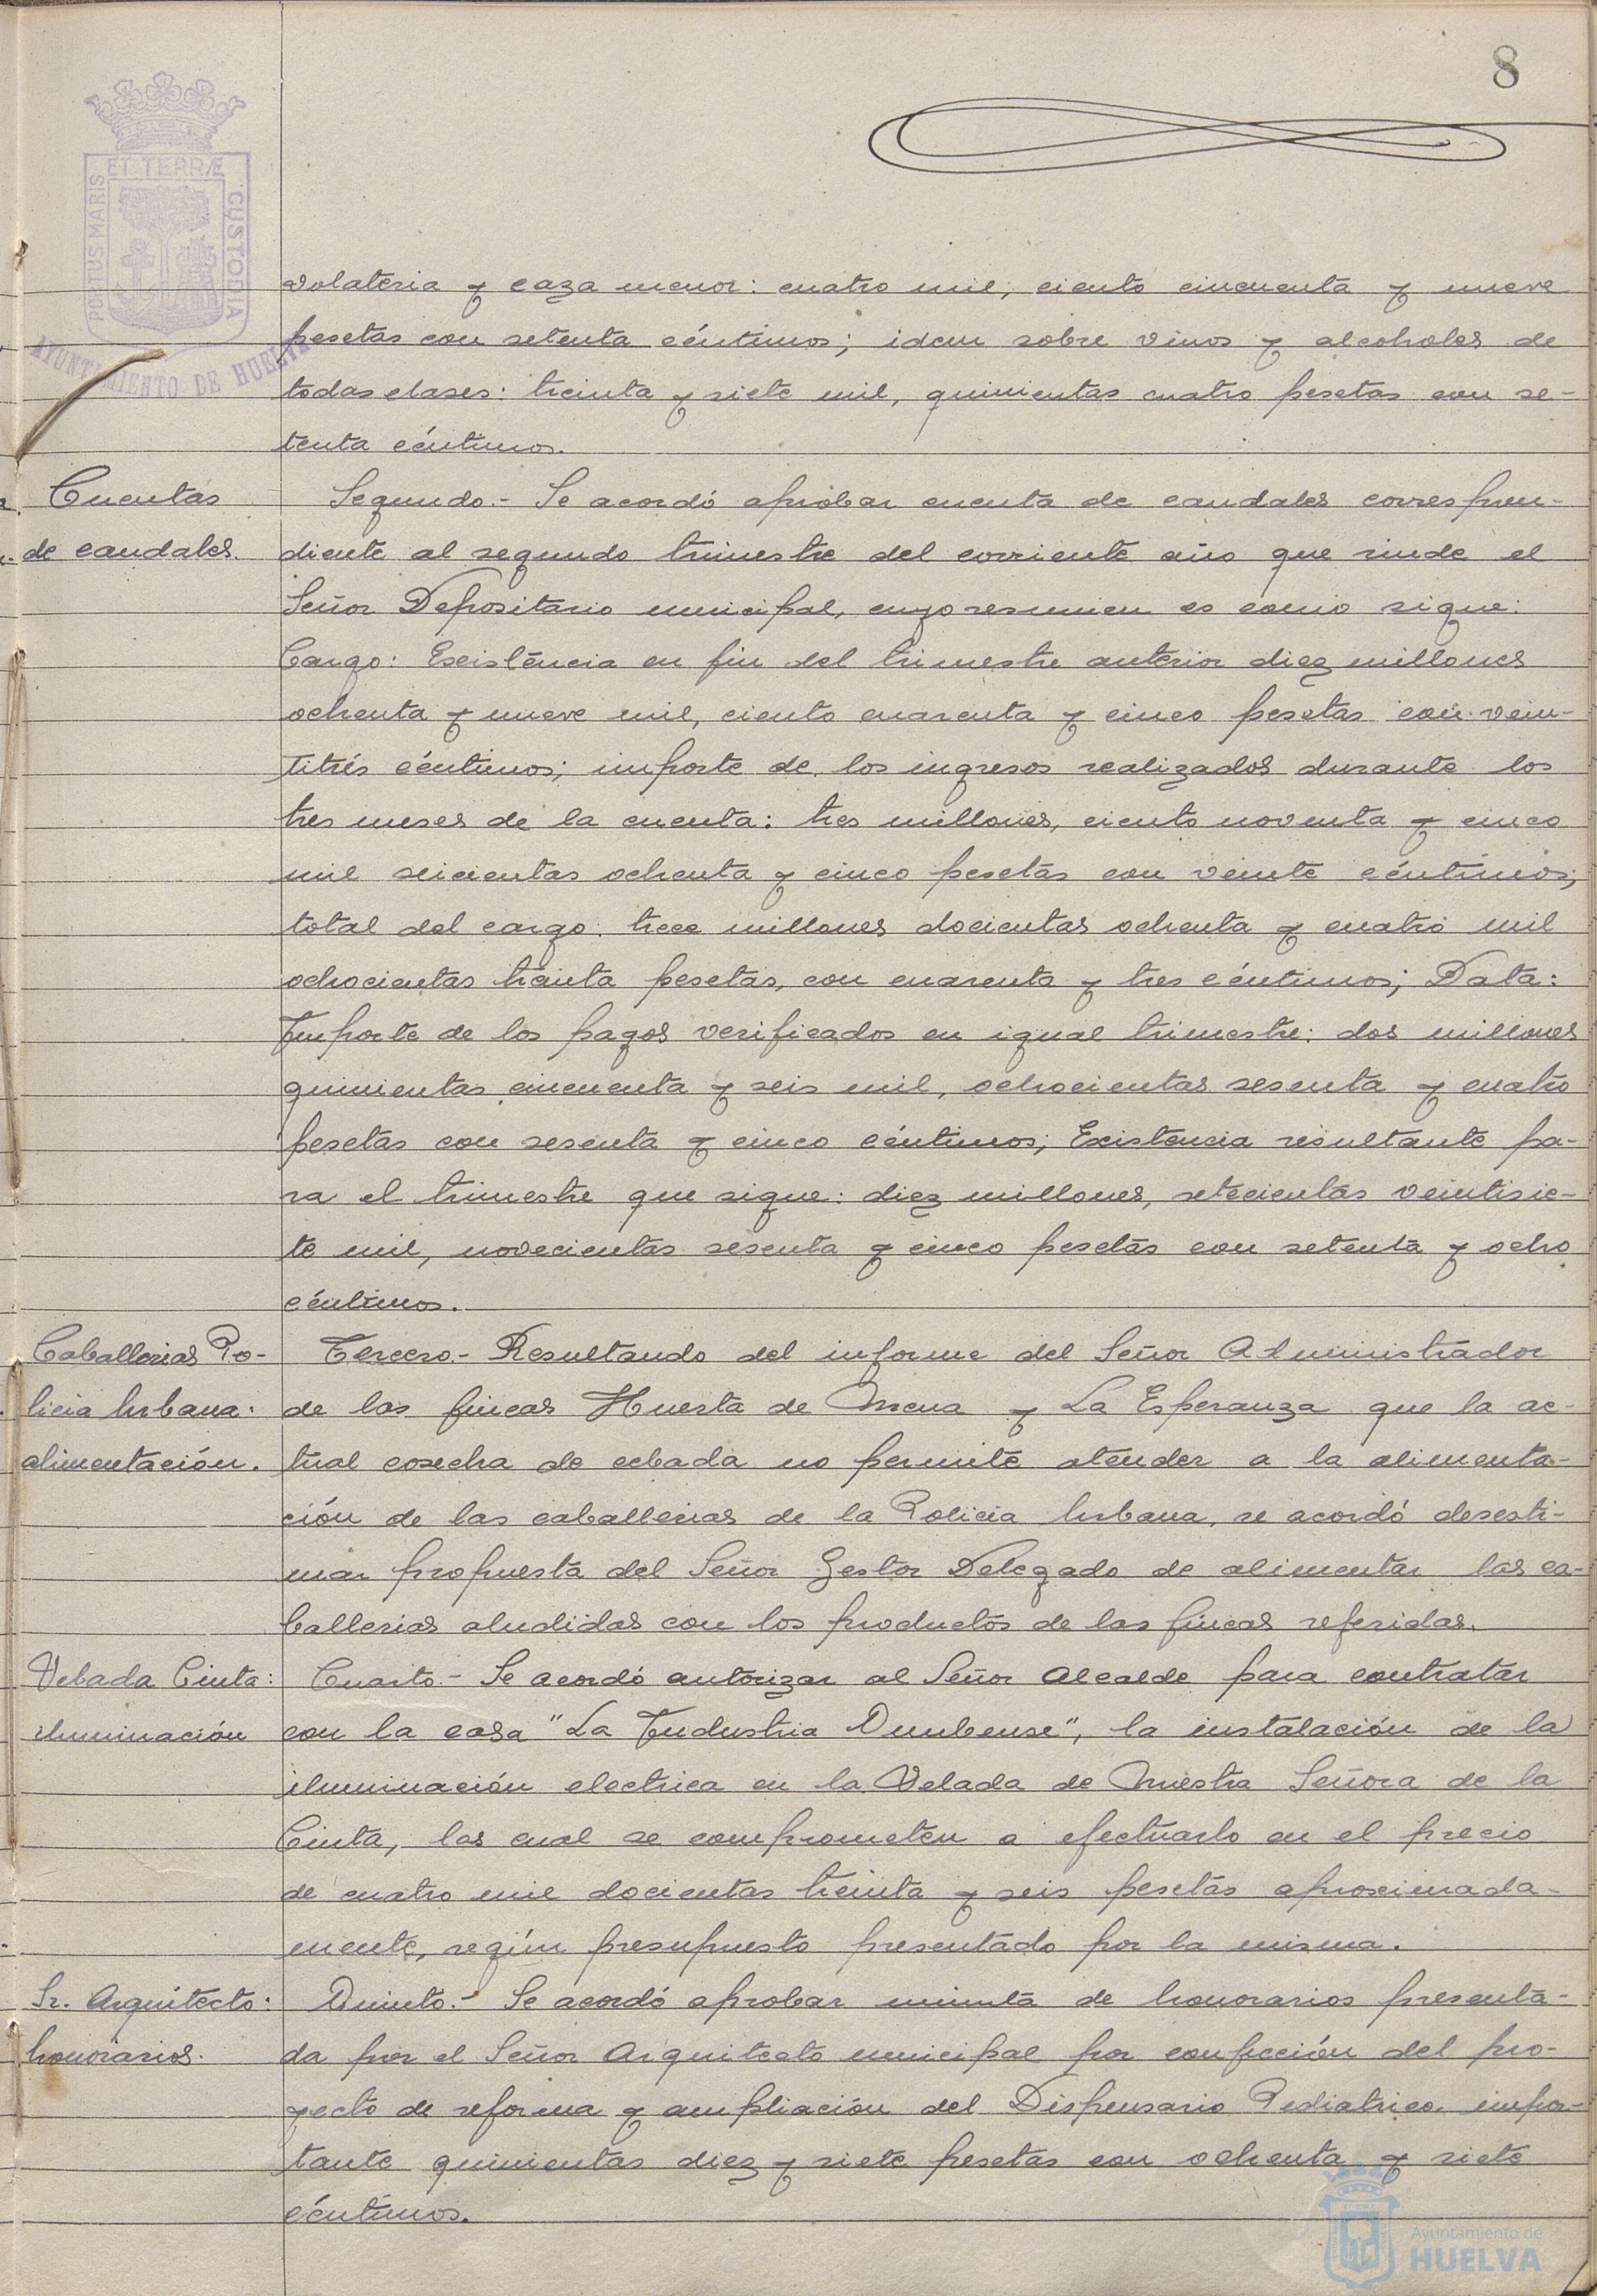 8
ET TERRÆ
PORTUS MARIS
CUSTODIA
AYUNTAMIENTO DE HUELVA
volateria y caza menor: cuatro mil, ciento cincuenta y nueve
pesetas con setenta céntimos; idem sobre vinos y alcoholes de
todas clases: treinta y siete mil, quinientas cuatro pesetas con se-
tenta céntimos.
Cuentas
de caudales.
Segundo.- Se acordó aprobar cuenta de caudales correspon-
diente al segundo trimestre del corriente año que rinde el
Señor Depositario municipal, cuyo resumen es como sigue:
Cargo: Existencia en fin del trimestre anterior diez millones
ochenta y nueve mil, ciento cuarenta y cinco pesetas con vein-
titrés céntimos; importe de los ingresos realizados durante los
tres meses de la cuenta: tres millones, ciento noventa y cinco
mil seicientas ochenta y cinco pesetas con veinte céntimos;
total del cargo: trece millones docientas ochenta y cuatro mil
ochocientas treinta pesetas, con cuarenta y tres céntimos; Data:
Importe de los pagos verificados en igual trimestre: dos millones
quinientas cincuenta y seis mil, ochocientas sesenta y cuatro
pesetas con sesenta y cinco céntimos; Existencia resultante pa-
ra el trimestre que sigue: diez millones, setecientas veintisie-
te mil, novecientas sesenta y cinco pesetas con setenta y ocho
céntimos.
Caballerias Po-
licia Urbana:
alimentación.
Tercero.- Resultando del informe del Señor Administrador
de las fincas Huerta de Mena y La Esperanza que la ac-
tual cosecha de cebada no permite atender a la alimenta-
ción de las caballerias de la Policia Urbana, se acordó desesti-
mar propuesta del Señor Gestor Delegado de alimentar las ca-
ballerias aludidas con los productos de las fincas referidas.
Velada Cinta:
iluminación
Cuarto.- Se acordó autorizar al Señor Alcalde para contratar
con la casa "La Industria Onubense", la instalación de la
iluminación electrica en la Velada de Nuestra Señora de la
Cinta, las cual se comprometen a efectuarlo en el precio
de cuatro mil docientas treinta y seis pesetas aproximada-
mente, según presupuesto presentado por la misma.
Sr. Arquitecto:
honorarios.
Quinto.- Se acordó aprobar minuta de honorarios presenta-
da por el Señor Arquitecto municipal por confección del pro-
yecto de reforma y ampliación del Dispensario Pediatrico impor-
tante quinientas diez y siete pesetas con ochenta y siete
céntimos.
Ayuntamiento de
HUELVA